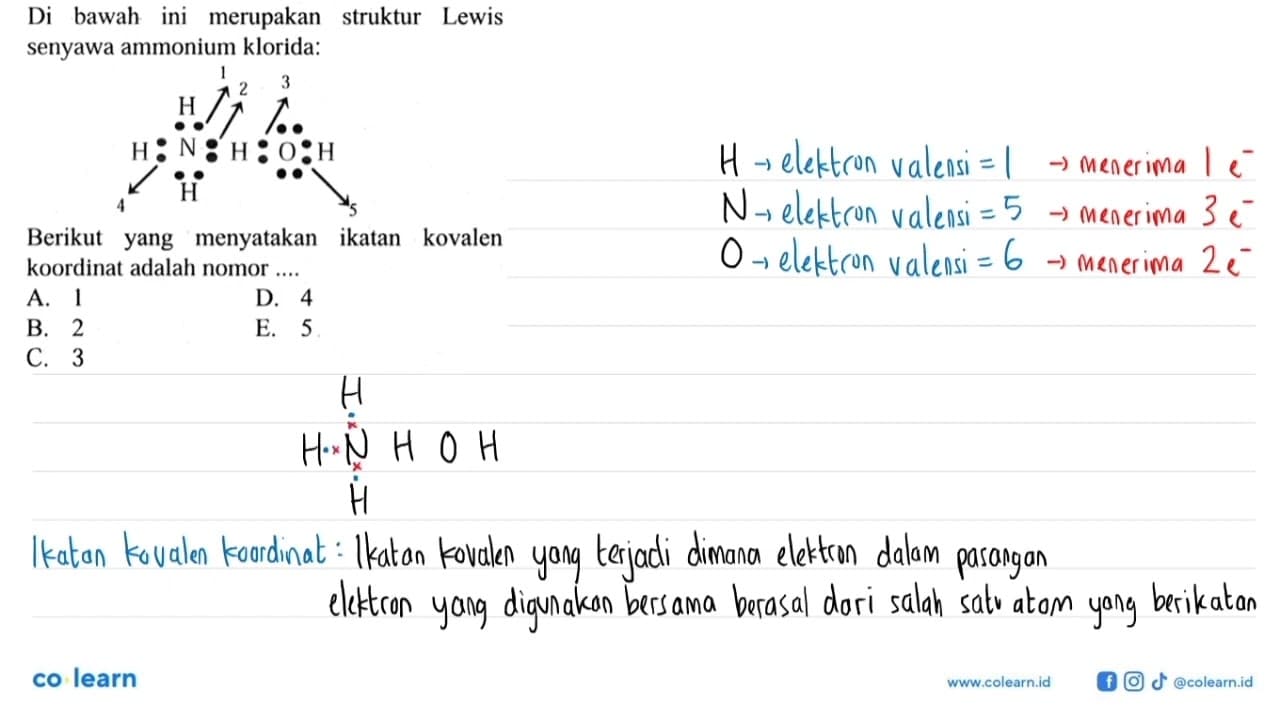 Di bawah ini merupakan struktur Lewis
senyawa ammonium klorida:
1
2
3
H
H N H O H
H
4
5
Berikut yang menyatakan ikatan kovalen
koordinat adalah nomor ....
A. 1 D. 4
B. 2 E. 5
C. 3
H → elektron valensi = 1 → menerima 1 e⁻
N → elektron valensi = 5 → menerima 3 e⁻
O → elektron valensi = 6 → menerima 2 e⁻
H
H·×N H O H
H
Ikatan kovalen koordinat : Ikatan kovalen yang terjadi dimana elektron dalam pasangan
elektron yang digunakan bersama berasal dari salah satu atom yang berikatan
co learn
www.colearn.id
@colearn.id